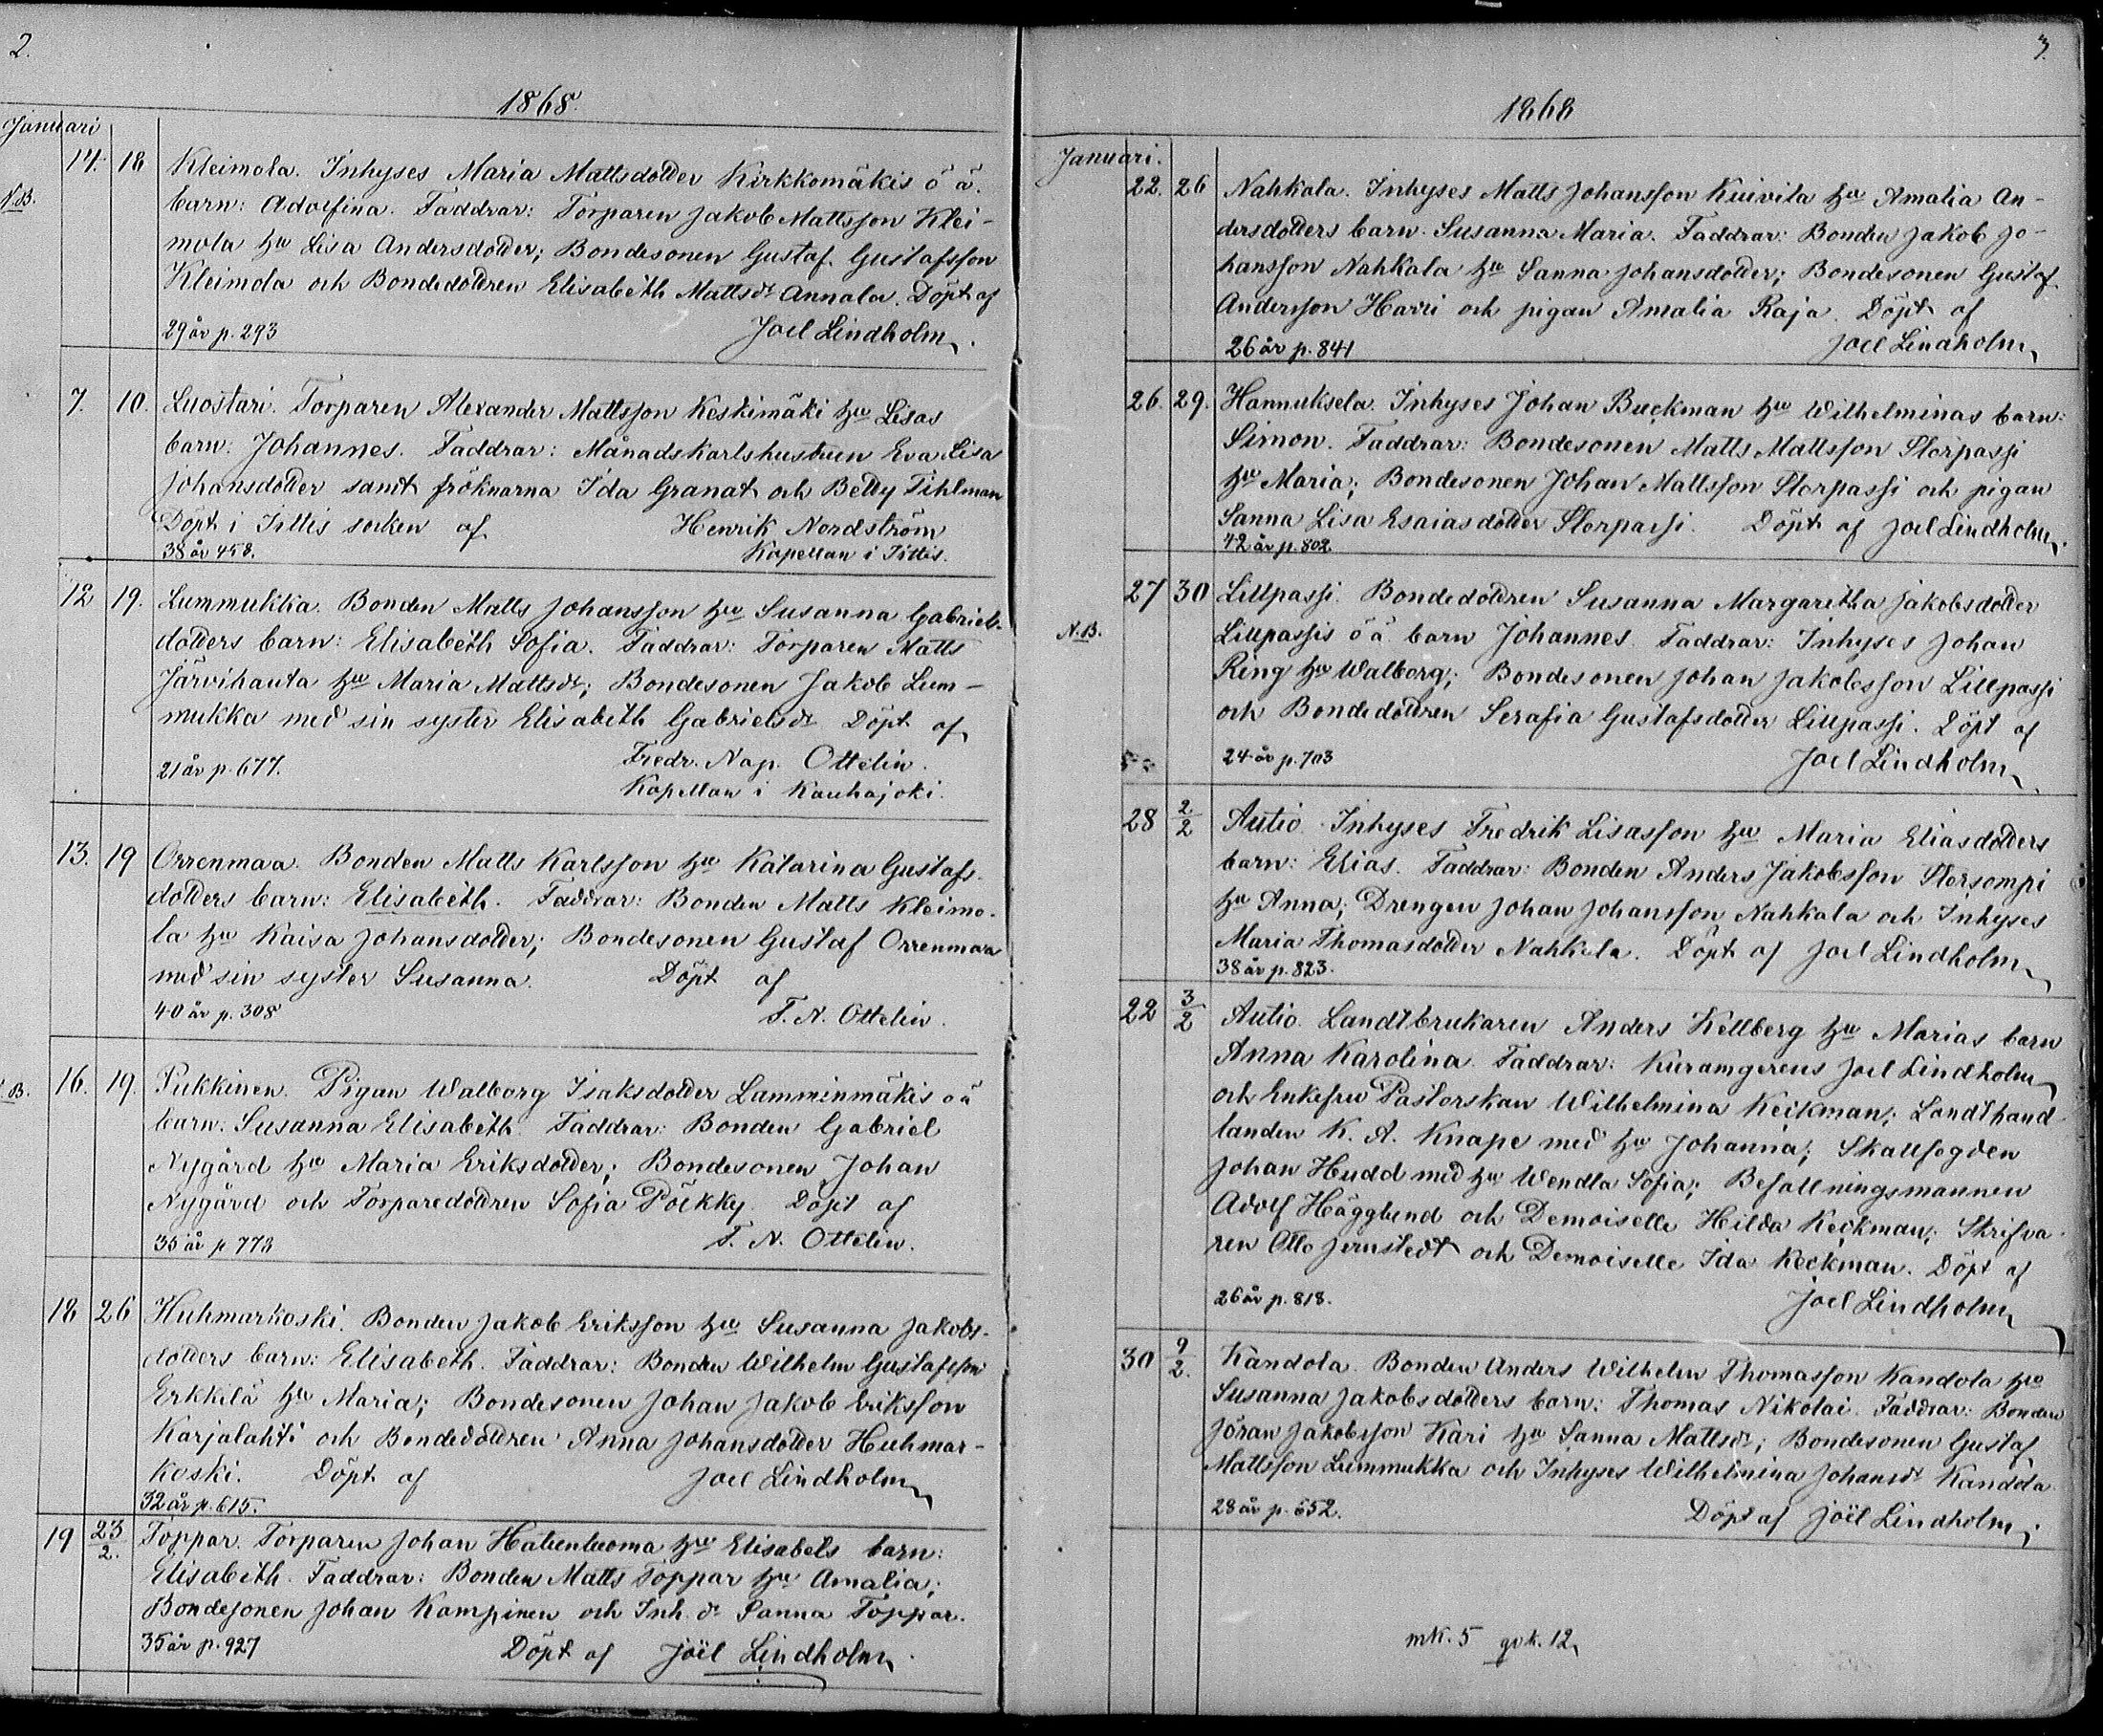 2.
1868.
Januari
14. 18 Kleimola. Inhyses Maria Mattsdotter Kirkkomäkis o ä.
N.B. barn: Adolfina. Faddrar: Torparen Jakob Mattsson Klei-
mola hu Lisa Andersdotter; Bondesonen Gustaf Gustafsson
Kleimola och Bondedottren Elisabeth Mattsdr Annala. Döpt af
29 år p. 293 Joel Lindholm.
7. 10. Luostari. Torparen Alexander Mattsson Keskimäki hu Lisas
barn: Johannes. Faddrar: Månadskarlshustrun Eva Lisa
Johansdotter samt fröknarna Ida Granat och Betty Tihlman
Döpt i Iittis socken af Henrik Nordström
38 år 458. Kapellan i Iittis.
12 19. Lummukka. Bonden Matts Johansson hu Susanna Gabriels-
dotters barn: Elisabeth Sofia. Faddrar: Torparen Matts
Järvihauta hu Maria Mattsdr; Bondesonen Jakob Lum-
mukka med sin syster Elisabeth Gabrielsdr Döpt af
21 år p. 677. Fredr. Nap. Ottelin.
Kapellan i Kauhajoki.
13. 19 Orrenmaa. Bonden Matts Karlsson hu Katarina Gustafs-
dotters barn: Elisabeth. Faddrar: Bonden Matts Kleimo-
la hu Kaisa Johansdotter; Bondesonen Gustaf Orrenmaa
med sin syster Susanna. Döpt af
40 år p. 308 F. N. Ottelin.
B. 16. 19. Pukkinen. Pigan Walborg Isaksdotter Lamminmäkis o ä
barn: Susanna Elisabeth. Faddrar: Bonden Gabriel
Nygård hu Maria Eriksdotter; Bondesonen Johan
Nygård och Torparedottren Sofia Pölkky. Döpt af
35 år p 773 F. N. Ottelin.
18 26 Huhmarkoski. Bonden Jakob Eriksson hu Susanna Jakobs-
dotters barn: Elisabeth. Faddrar: Bonden Wilhelm Gustafsson
Erkkilä hu Maria; Bondesonen Johan Jakob Eriksson
Karjalahti och Bondedottren Anna Johansdotter Huhmar-
koski. Döpt af Joel Lindholm
32 år p. 615.
19 23/2. Toppar. Torparen Johan Hatuenluoma hu Elisabets barn:
Elisabeth. Faddrar: Bonden Matts Toppar hu Amalia;
Bondesonen Johan Kampinen och Inh. dr Sanna Toppar.
35 år p. 927 Döpt af Joël Lindholm.
3.
1868
Januari.
22. 26 Nahkala. Inhyses Matts Johansson Kuivila hu Amalia An-
dersdotters barn. Susanna Maria. Faddrar: Bonden Jakob Jo-
hansson Nahkala hu Sanna Johansdotter; Bondesonen Gustaf
Andersson Harri och pigan Amalia Raja. Döpt af
26 år p. 841 Joel Lindholm
26. 29. Hannuksela. Inhyses Johan Buckman hu Wilhelminas barn:
Simon. Faddrar: Bondesonen Matts Mattsson Storpassi
hu Maria; Bondesonen Johan Mattsson Storpassi och pigan
Sanna Lisa Esaiasdotter Storpassi. Döpt af Joel Lindholm.
42 år p. 802.
27 30 Lillpassi. Bondedottren Susanna Margaretha Jakobsdotter
N.B. Lillpassis o ä barn Johannes. Faddrar: Inhyses Johan
Ring hu Walborg; Bondesonen Johan Jakobsson Lillpassi
och Bondedottren Serafia Gustafsdotter Lillpassi. Döpt af
24 år p. 703 Joel Lindholm
28 2/2 Autio. Inhyses Fredrik Lisasson hu Maria Eliasdotters
barn: Elias. Faddrar: Bonden Anders Jakobsson Storsompi
hu Anna; Drengen Johan Johansson Nahkala och Inhyses
Maria Thomasdotter Nahkala. Döpt af Joel Lindholm
38 år p. 823.
22 3/2 Autio. Landtbrukaren Anders Kellberg hu Marias barn
Anna Karolina. Faddrar: Kuramgerens Joel Lindholm
och Enkefru Pastorskan Wilhelmina Keckman; Landthand-
landen K. A. Knape med hu Johanna; Skattfogden
Johan Hudd med hu Wendla Sofia; Befallningsmannen
Adolf Hägglund och Demoiselle Hilda Keckman; Skrifva-
ren Otto Jernstedt och Demoiselle Ida Keckman. Döpt af
26 år p. 818. Joel Lindholm
30 9/2. Kandola. Bonden Anders Wilhelm Thomasson Kandola hu
Susanna Jakobsdotters barn: Thomas Nikolai. Faddrar: Bonden
Jöran Jakobsson Kari hu Sanna Mattsdr; Bondesonen Gustaf
Mattsson Lummukka och Inhyses Wilhelmina Johansdr Kandola.
28 år p. 652. Döpt af Joël Lindholm.
mk. 5 qvk. 12